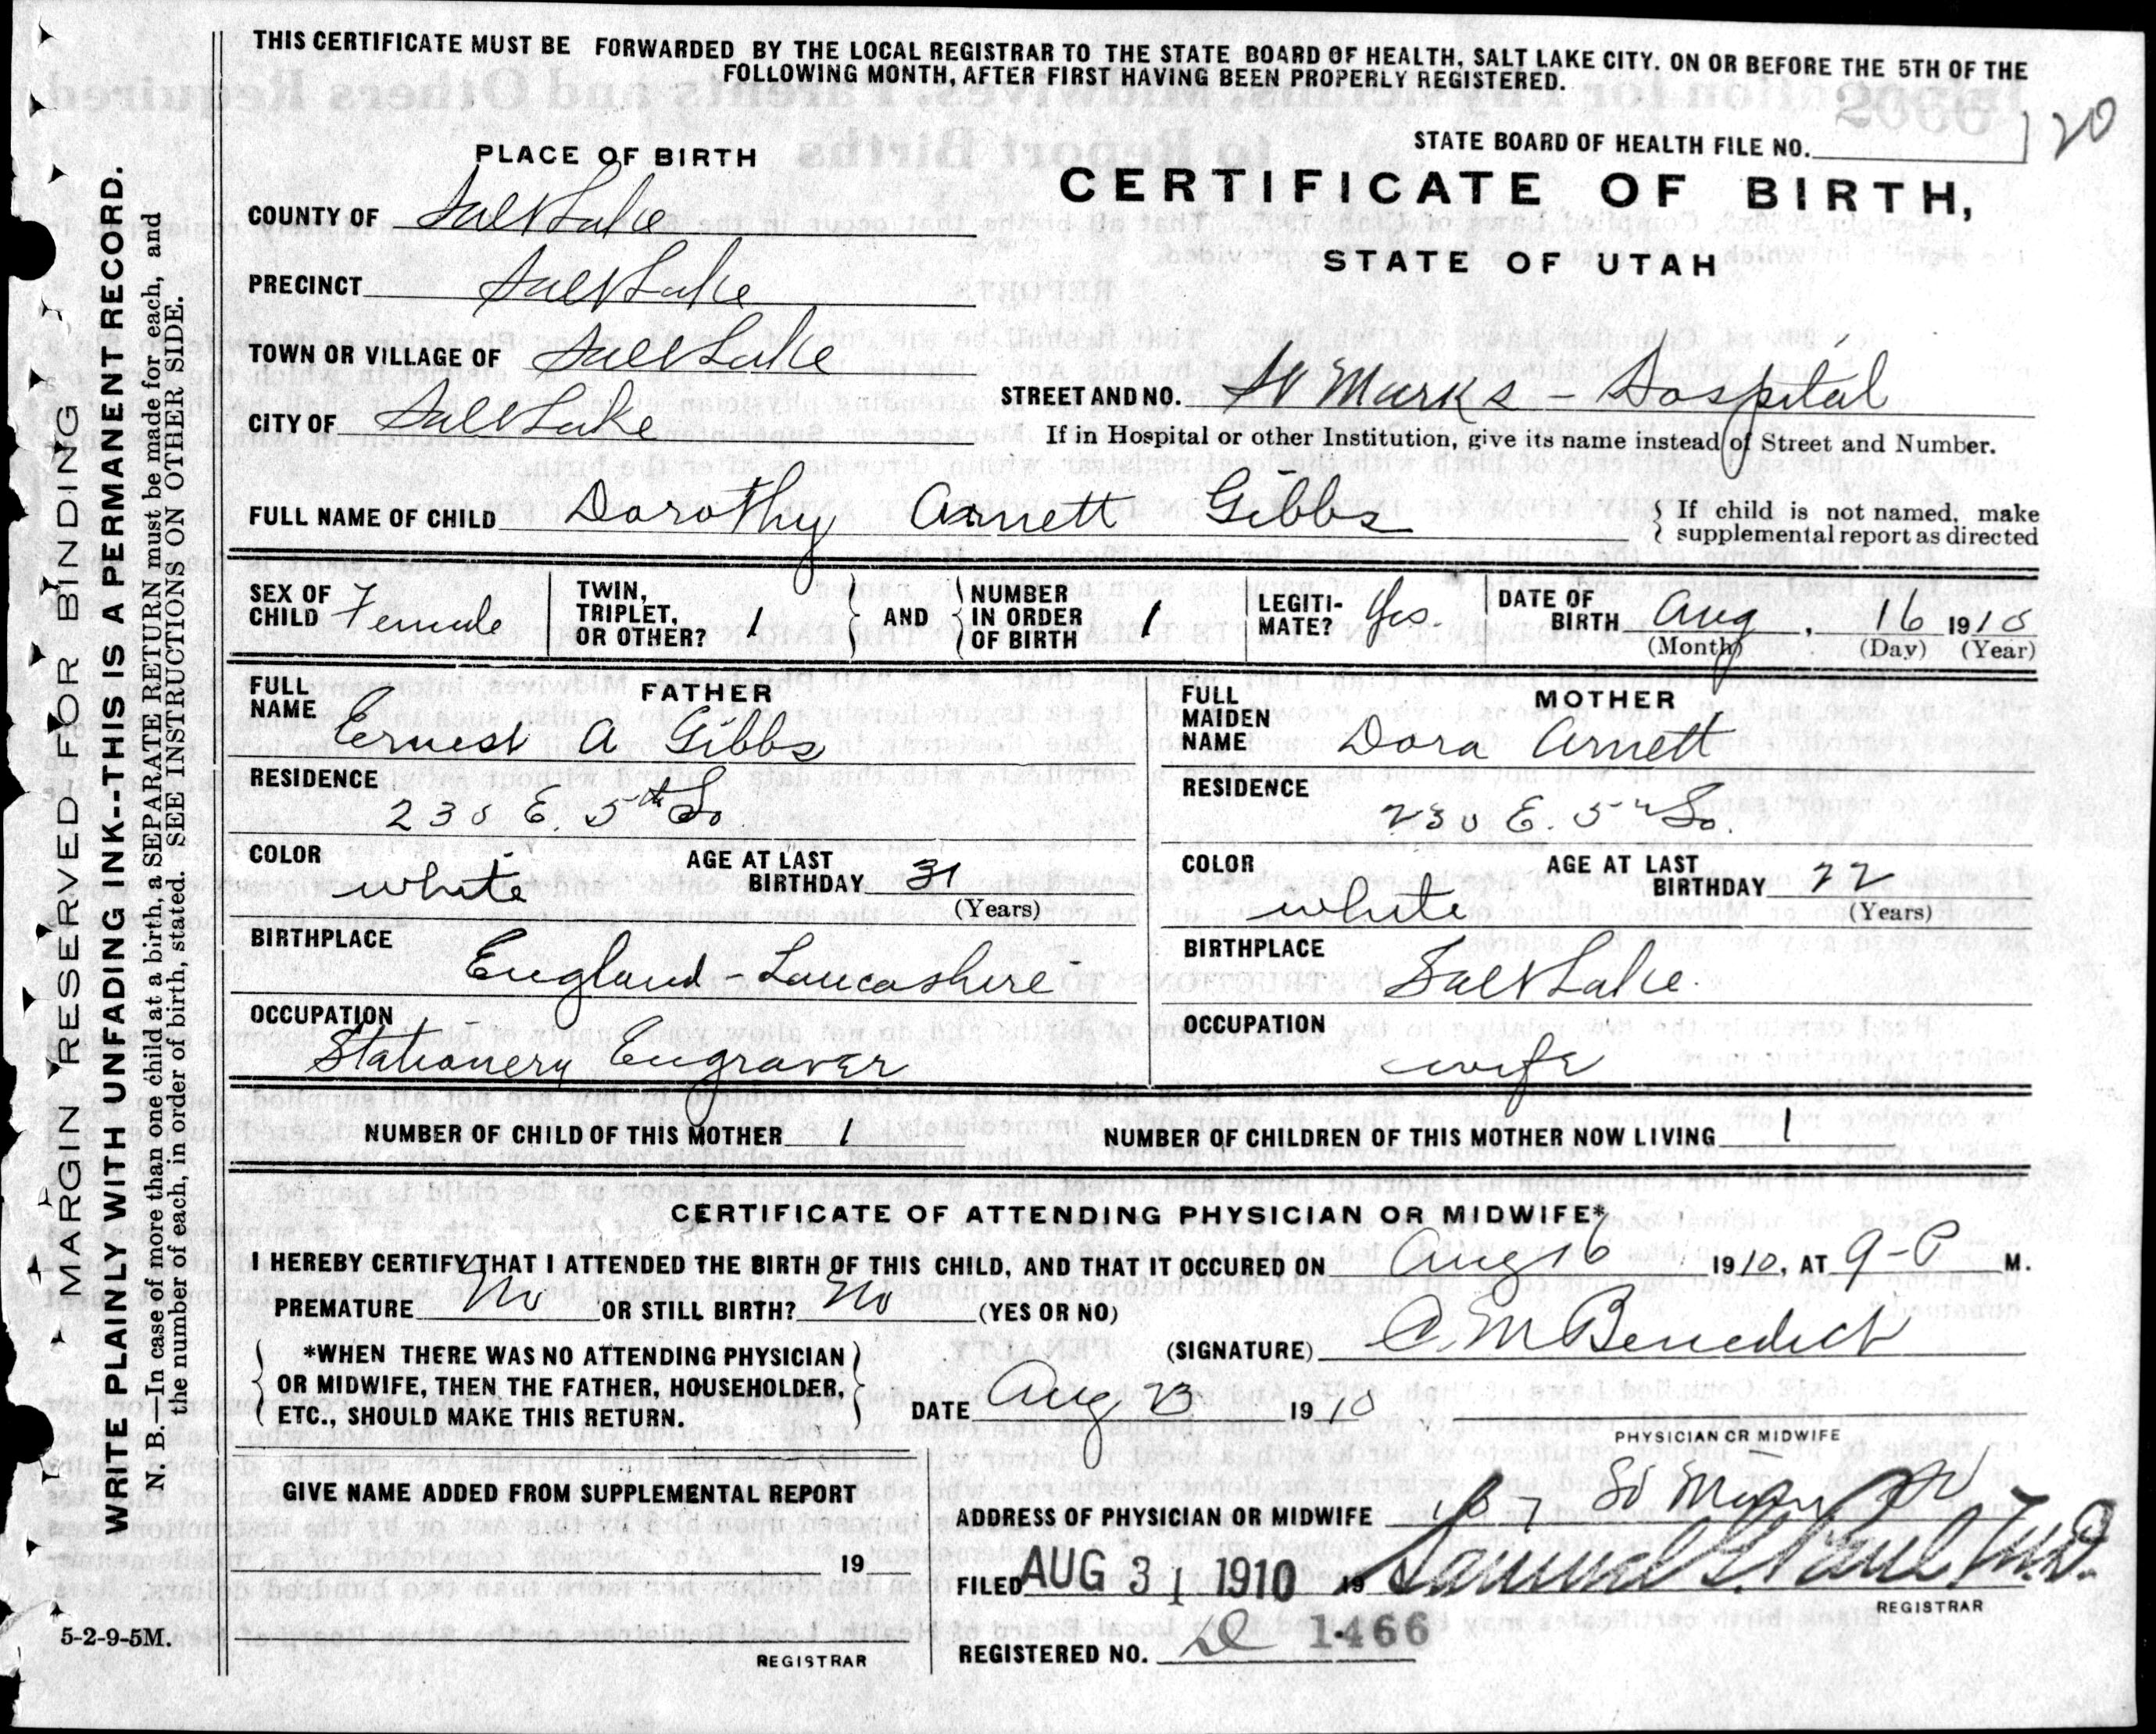 THIS CERTIFICATE MUST BE FORWARDED BY THE LOCAL REGISTRAR TO THE STATE BOARD OF HEALTH, SALT LAKE CITY. ON OR BEFORE THE 5TH OF THE
FOLLOWING MONTH, AFTER FIRST HAVING BEEN PROPERLY REGISTERED.
STATE BOARD OF HEALTH FILE NO. 120
PLACE OF BIRTH
CERTIFICATE OF BIRTH,
STATE OF UTAH
COUNTY OF Salt Lake
PRECINCT Salt Lake
TOWN OR VILLAGE OF Salt Lake
CITY OF Salt Lake
STREET AND NO. St Marks - Hospital
If in Hospital or other Institution, give its name instead of Street and Number.
FULL NAME OF CHILD Dorothy Arnett Gibbs
If child is not named, make
supplemental report as directed
SEX OF CHILD Female
TWIN, TRIPLET, OR OTHER? 1
AND
NUMBER IN ORDER OF BIRTH 1
LEGITI-MATE? Yes.
DATE OF BIRTH Aug, 16 1910
(Month) (Day) (Year)
FATHER
FULL NAME Ernest A Gibbs
RESIDENCE
E. 5th So
COLOR white
AGE AT LAST BIRTHDAY 31
(Years)
BIRTHPLACE
England - Lancashire
OCCUPATION
Stationery Engraver
MOTHER
FULL MAIDEN NAME Dora Arnett
RESIDENCE
E. 5th So.
COLOR white
AGE AT LAST BIRTHDAY 22
(Years)
BIRTHPLACE
Salt Lake.
OCCUPATION
wife
NUMBER OF CHILD OF THIS MOTHER 1
NUMBER OF CHILDREN OF THIS MOTHER NOW LIVING 1
CERTIFICATE OF ATTENDING PHYSICIAN OR MIDWIFE*
I HEREBY CERTIFY THAT I ATTENDED THE BIRTH OF THIS CHILD, AND THAT IT OCCURED ON Aug 16 1910, AT 9-P M.
PREMATURE No OR STILL BIRTH? No (YES OR NO)
*WHEN THERE WAS NO ATTENDING PHYSICIAN
OR MIDWIFE, THEN THE FATHER, HOUSEHOLDER,
ETC., SHOULD MAKE THIS RETURN.
(SIGNATURE) C. M Benedict
DATE Aug 23 1910
PHYSICIAN OR MIDWIFE
GIVE NAME ADDED FROM SUPPLEMENTAL REPORT
19
REGISTRAR
ADDRESS OF PHYSICIAN OR MIDWIFE So Main St
FILED AUG 31 1910 19 Samuel G. Paul M.D.
REGISTRAR
REGISTERED NO. 1466
MARGIN RESERVED FOR BINDING
WRITE PLAINLY WITH UNFADING INK--THIS IS A PERMANENT RECORD.
N. B.—In case of more than one child at a birth, a SEPARATE RETURN must be made for each, and
the number of each, in order of birth, stated. SEE INSTRUCTIONS ON OTHER SIDE.
5-2-9-5M.